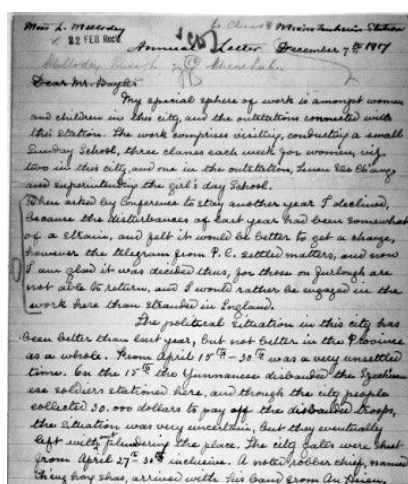 Miss L. Mellodey W. China Mienchuhsien Station
22 FEB Recd.
Annual Letter December 7th 1917
Mellodey Miss L Mienchuhsien
Dear Mr. Bayly
My special sphere of work is amongst women
and children in this city, and the outstations connected with
this station. The work comprises visiting, conducting a small
Sunday School, three classes each week for women, viz
two in this city, and one in the outstation,
and superintending the girl's day School.
When asked by Conference to stay another year I declined,
because the disturbances of last year had been somewhat
of a strain, and felt it would be better to get a change,
however the telegram from P.C. settled matters, and now
I am glad it was decided thus, for those on furlough are
not able to return, and I would rather be engaged in the
work here than stranded in England.
The political situation in this city has
been better than last year, but not better in the Province
as a whole. From April 15th - 30th was a very unsettled
time. On the 15th the Yunnanese disbanded the Szechwan
ese soldiers stationed here, and though the city people
collected 30.000 dollars to pay off the disbanded troops,
the situation was very uncertain, but they eventually
left without plundering the place. The city gates were shut
from April 27th - 30th inclusive. A noted robber chief, named
arrived with his band from An Hsien,